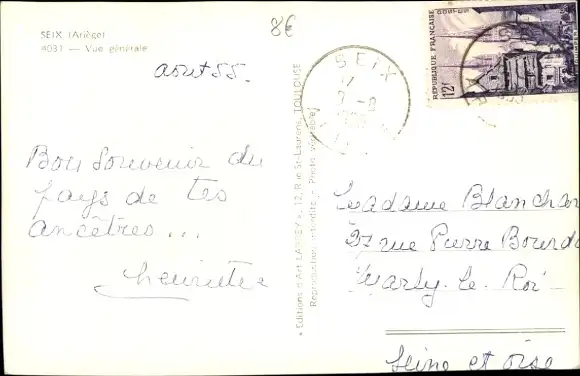 SEIX (Ariège)
4031 — Vue générale
8€
Août 55.
Bon Souvenir du
pays de tes
ancêtres...
Henriette
• Editions d'Art LARREY », 12, Rue St-Laurent, TOULOUSE
Reproduction interdite - Photo véritable
SEIX
RÉPUBLIQUE FRANÇAISE
12F
Madame Blanchar
27 rue Pierre Bourda
Marly-le-Roi
Seine et oise